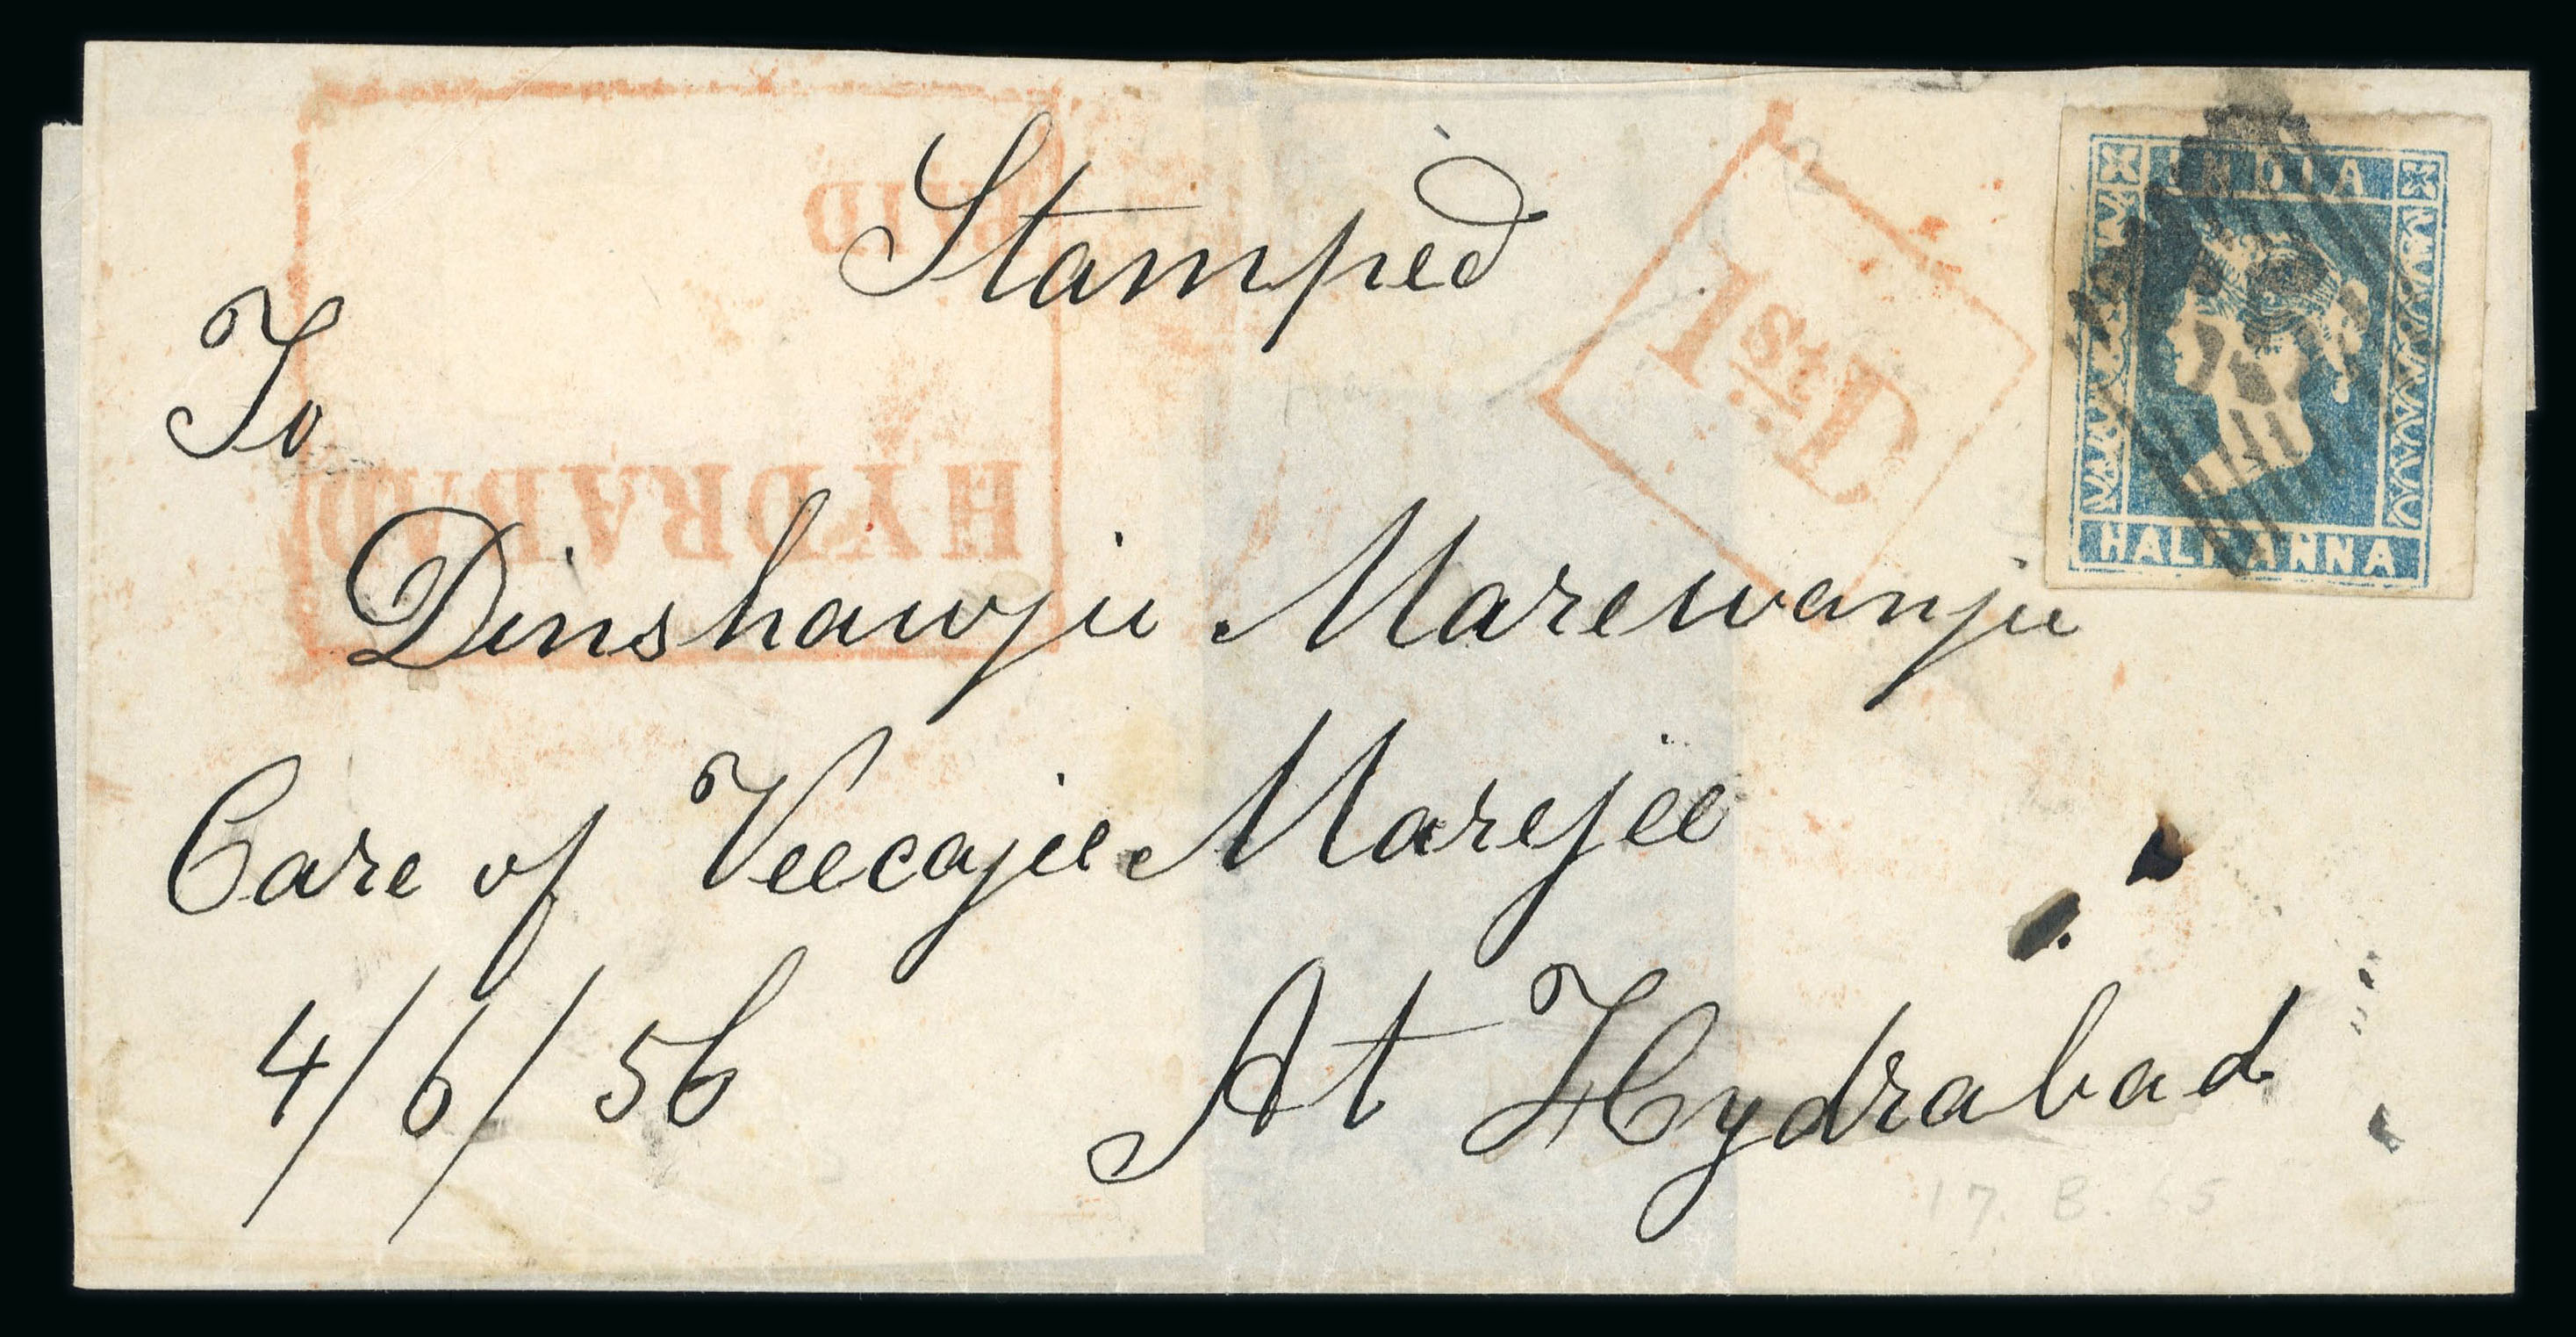 Stamped
PAID
1st D
INDIA
HALF ANNA
To
HYDRABAD
Dinshawjee Marewanjee
Care of Veecajee Marejee
4/6/56
At Hydrabad
17. B. 65